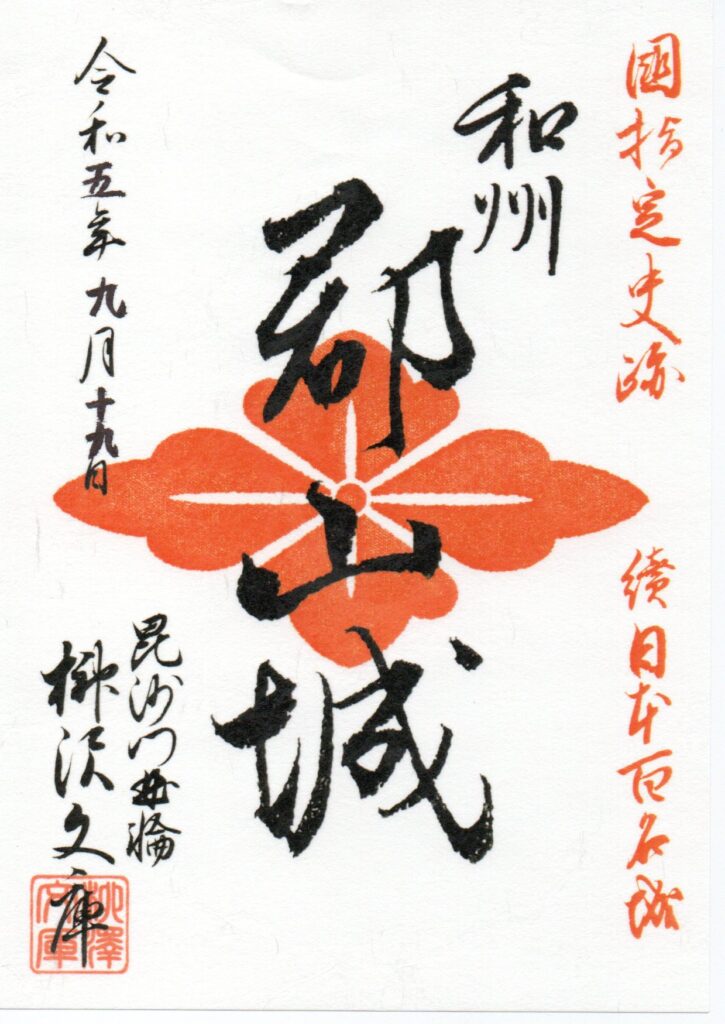 國指定史跡
續日本百名城
和州
郡山城
令和五年九月十九日
毘沙門曲輪
柳沢文庫
柳澤文庫